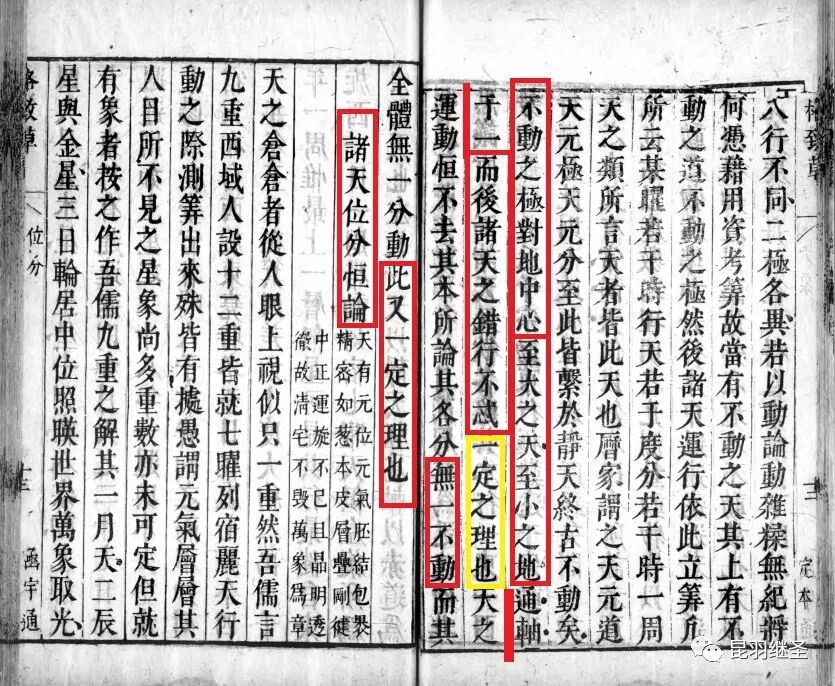 格致草
定本
八行不同二極各異若以動論動雜糅無紀將
何憑藉用資考筭故當有不動之天其上有不
動之道不動之極然後諸天運行依此立筭凡
所云某曜若干時行天若干度分若干時一周
天之類所言天者皆此天也曆家謂之天元道
天元極天元分至此皆繫於靜天終古不動矣
不動之極對地中心至大之天至小之地通軸
于一而後諸天之錯行不忒一定之理也天之
運動恒不去其本所論其各分無一不動而其
全體無一分動此又一定之理也
諸天位分恒論
天有元位元氣胚結包褁
精密如葱本皮層疊剛健
中正運旋不已且晶明透
徹故清宅不毀萬象為章
天之倉倉者從人眼上視似只一重然吾儒言
九重西域人設十二重皆就七曜列宿麗天行
動之際測筭出來殊皆有據愚謂元氣層層其
人目所不見之星象尚多重數亦未可定但就
有象者按之作吾儒九重之解其一月天二辰
星與金星三日輪居中位照映世界萬象取光
格致草
位分
十三
函宇通
昆羽继圣